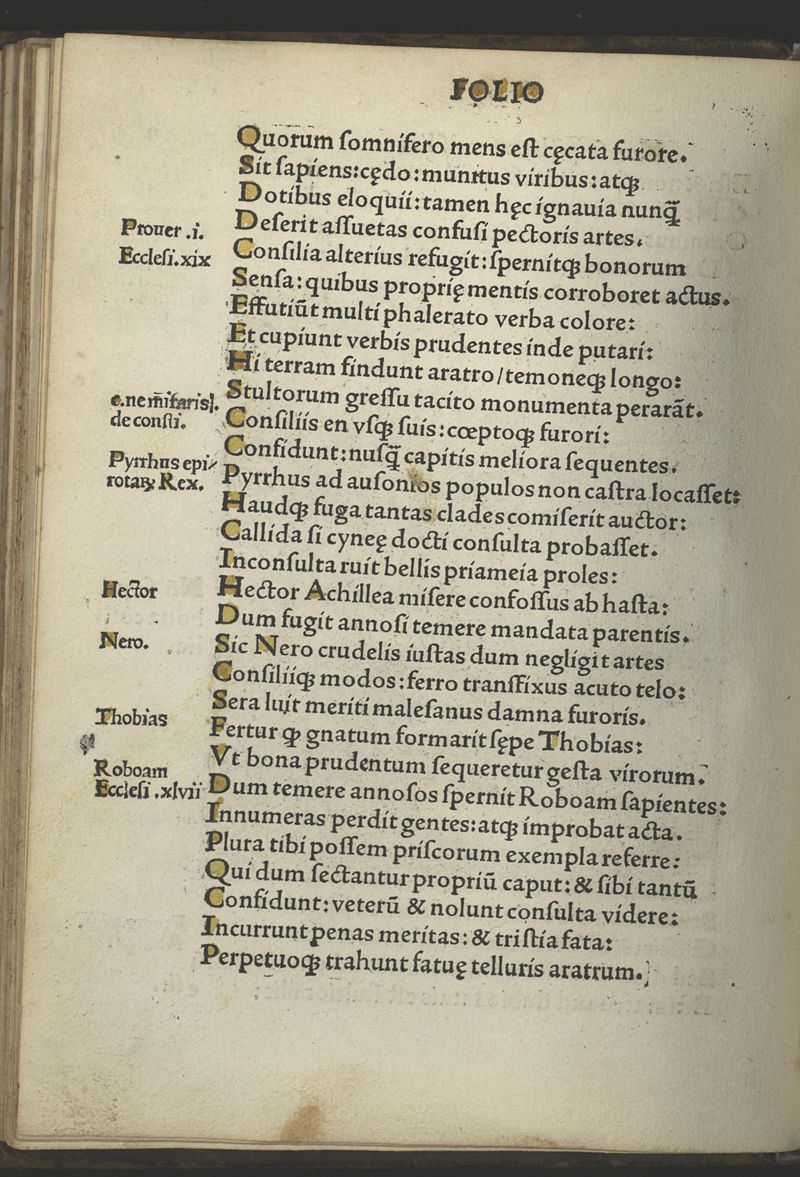 FOLIO
Quorum ſomnifero mens eſt cęcata furore.
Sit ſapiens:cędo:munitus viribus:atqꝫ
Dotibus eloquii:tamen hęc ignauia nunq̃
Prouer .i.
Deſerit aſſuetas confuſi pectoris artes.
Eccleſi.xix
Conſilia alterius refugit:ſpernitqꝫ bonorum
Senſa:quibus proprię mentis corroboret actus.
Effutiũt multi phalerato verba colore:
Et cupiunt verbis prudentes inde putari:
Hi terram findunt aratro/temoneqꝫ longo:
Stultorum greſſu tacito monumenta perarãt.
de conſti.
Conſiliis en vſqꝫ ſuis:cœptoqꝫ furori:
Confidunt:nuſq̃ capitis meliora ſequentes.
Pyrrhus epi/
rotaꝝ Rex.
Pyrrhus ad auſonios populos non caſtra locaſſet:
Haudqꝫ fuga tantas clades comiſerit auctor:
Callida ſi cyneę docti conſulta probaſſet.
Inconſulta ruit bellis priameia proles:
Hector
Hector Achillea miſere confoſſus ab haſta:
Dum fugit annoſi temere mandata parentis.
Nero.
Sic Nero crudelis iuſtas dum negligit artes
Conſiliiqꝫ modos:ferro tranſfixus acuto telo:
Sera luit meriti maleſanus damna furoris.
Thobias
Fertur qꝫ gnatum formarit ſępe Thobias:
Vt bona prudentum ſequeretur geſta virorum.
Roboam
Eccleſi .xlvii
Dum temere annoſos ſpernit Roboam ſapientes:
Innumeras perdit gentes:atqꝫ improbat acta.
Plura tibi poſſem priſcorum exempla referre:
Qui dum ſectantur propriũ caput:& ſibi tantũ
Confidunt:veterũ & nolunt conſulta videre:
Incurrunt penas meritas:& triſtia fata:
Perpetuoqꝫ trahunt fatuę telluris aratrum.